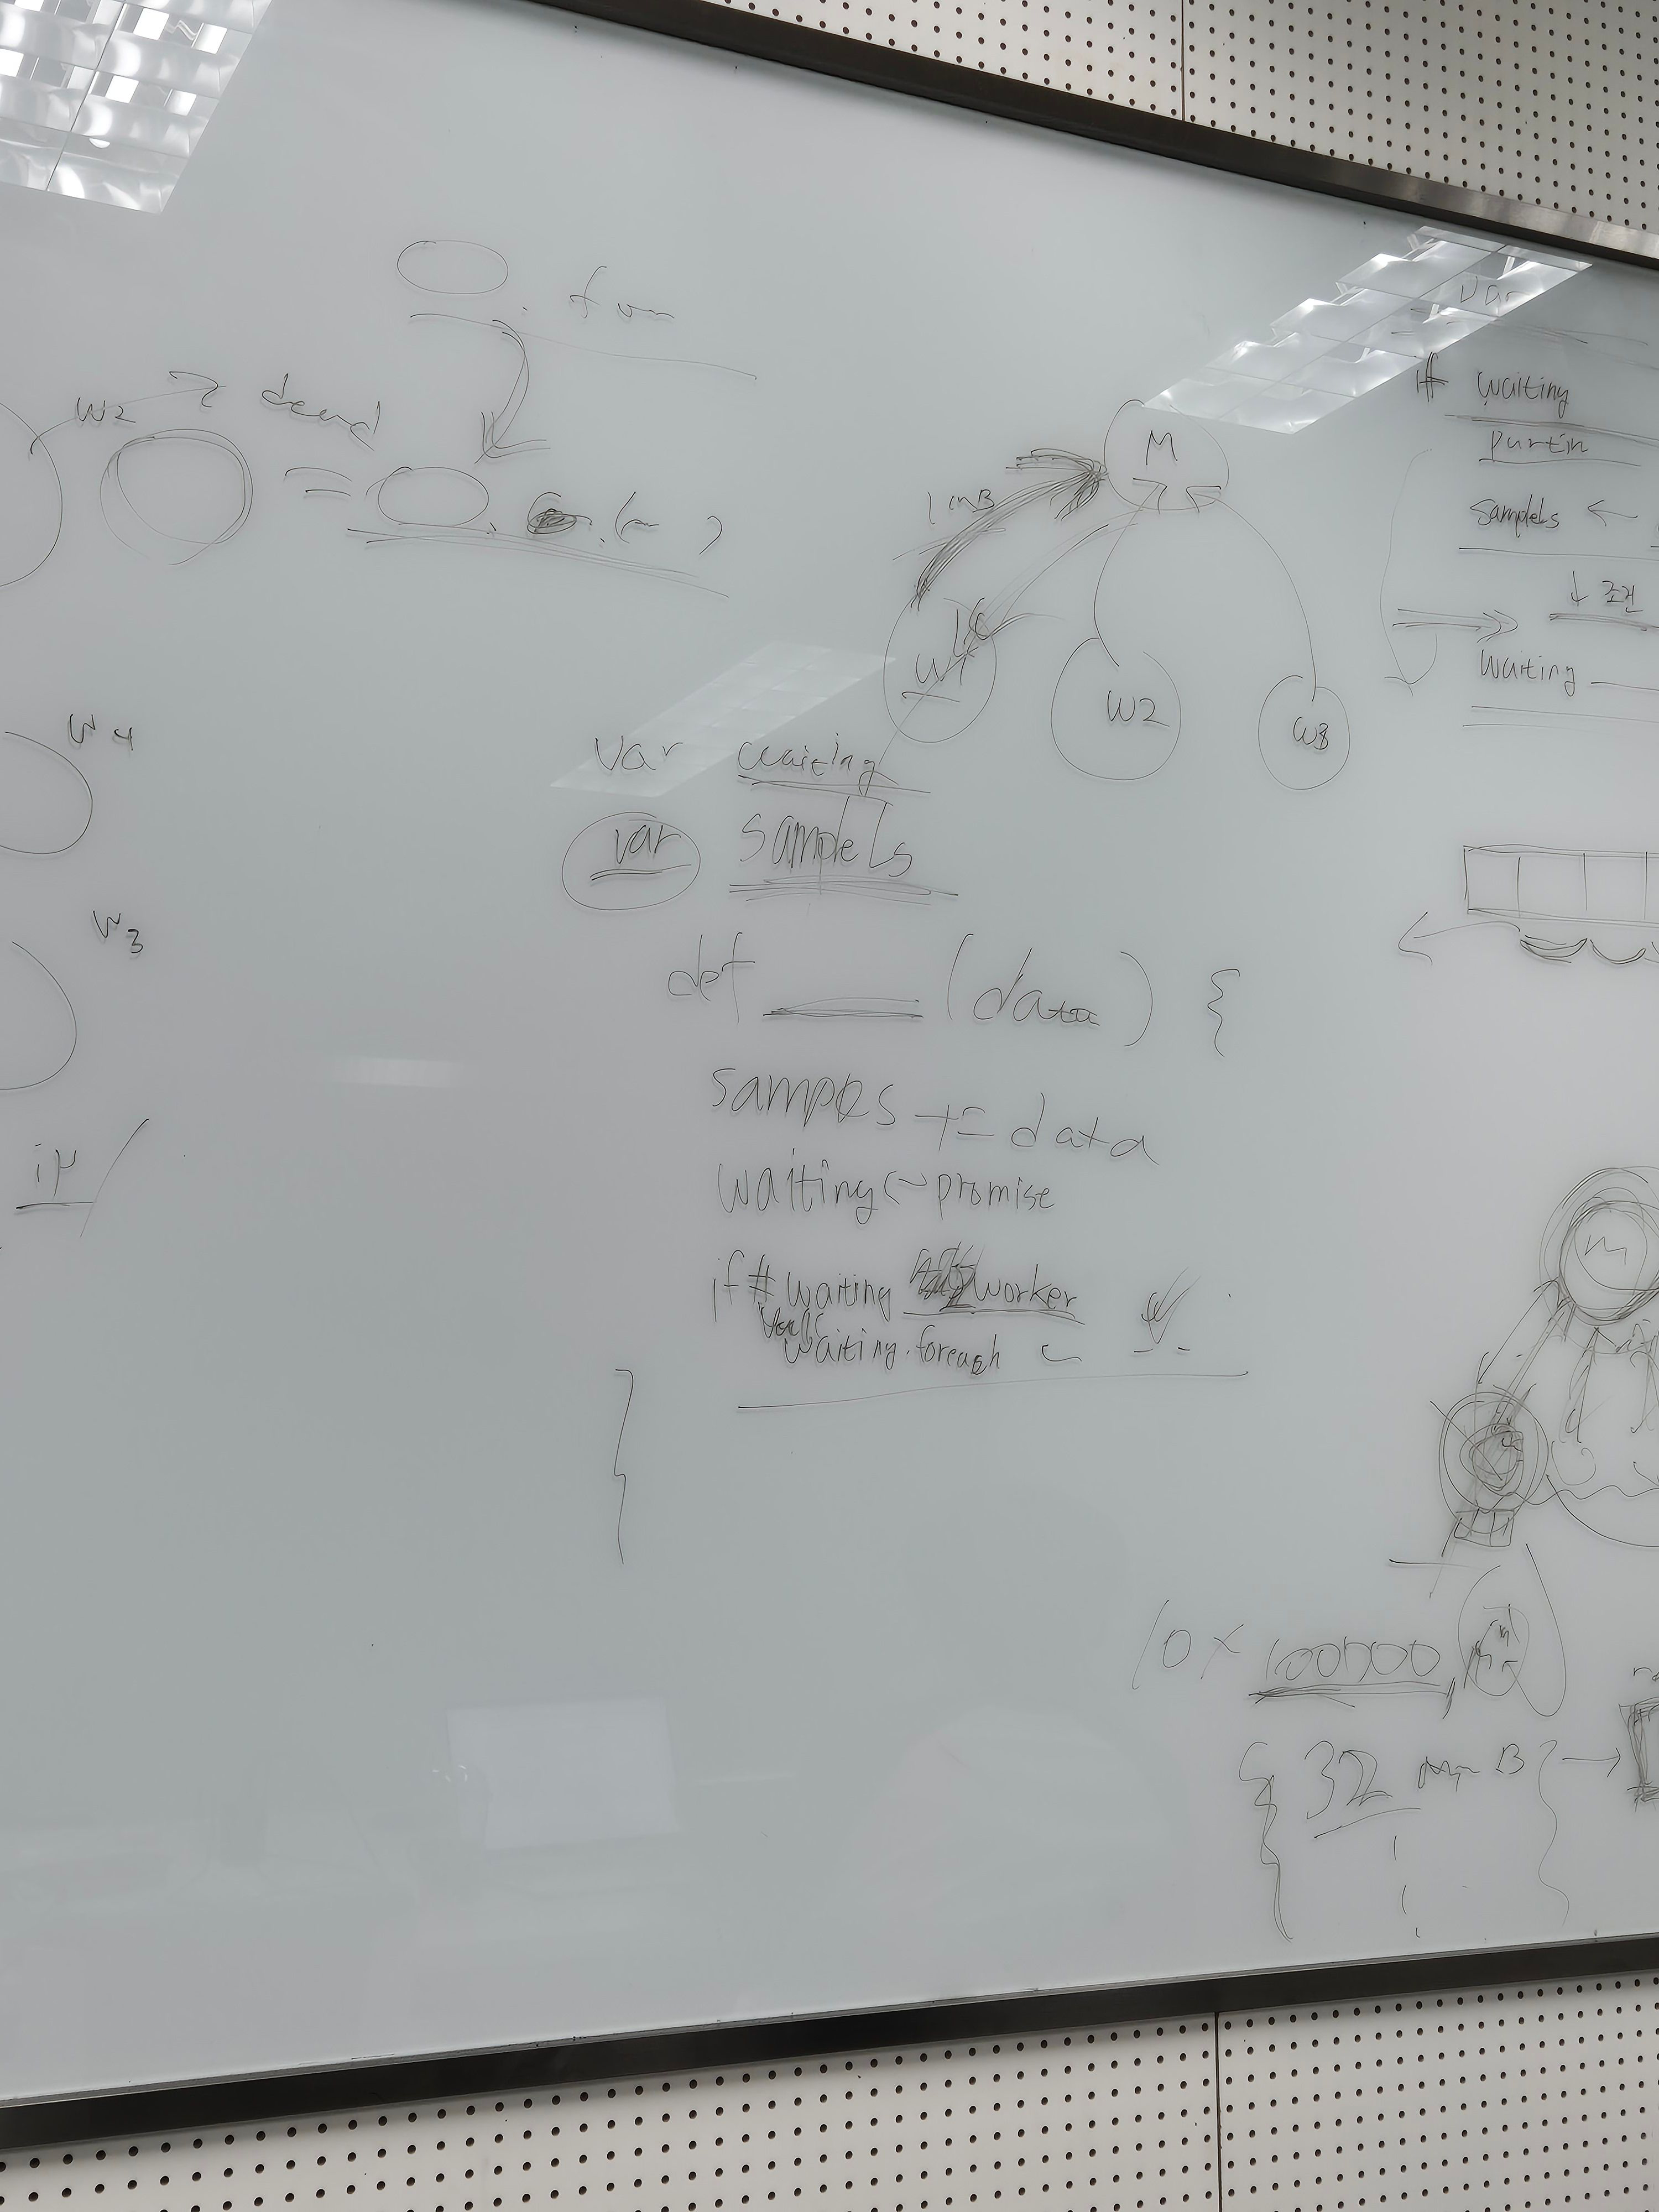 . fun
W2 → dead
= . ( )
W4
W3
ip /
M
1 MB
W1
W2
W3
var waiting
var sampels
def ____ (data) {
samples += data
waiting <- promise
if # waiting worker
waiting.foreach
}
var
# waiting
sampels ←
↓ 조건
waiting
M
10 × 100000
{ 32 MB } →